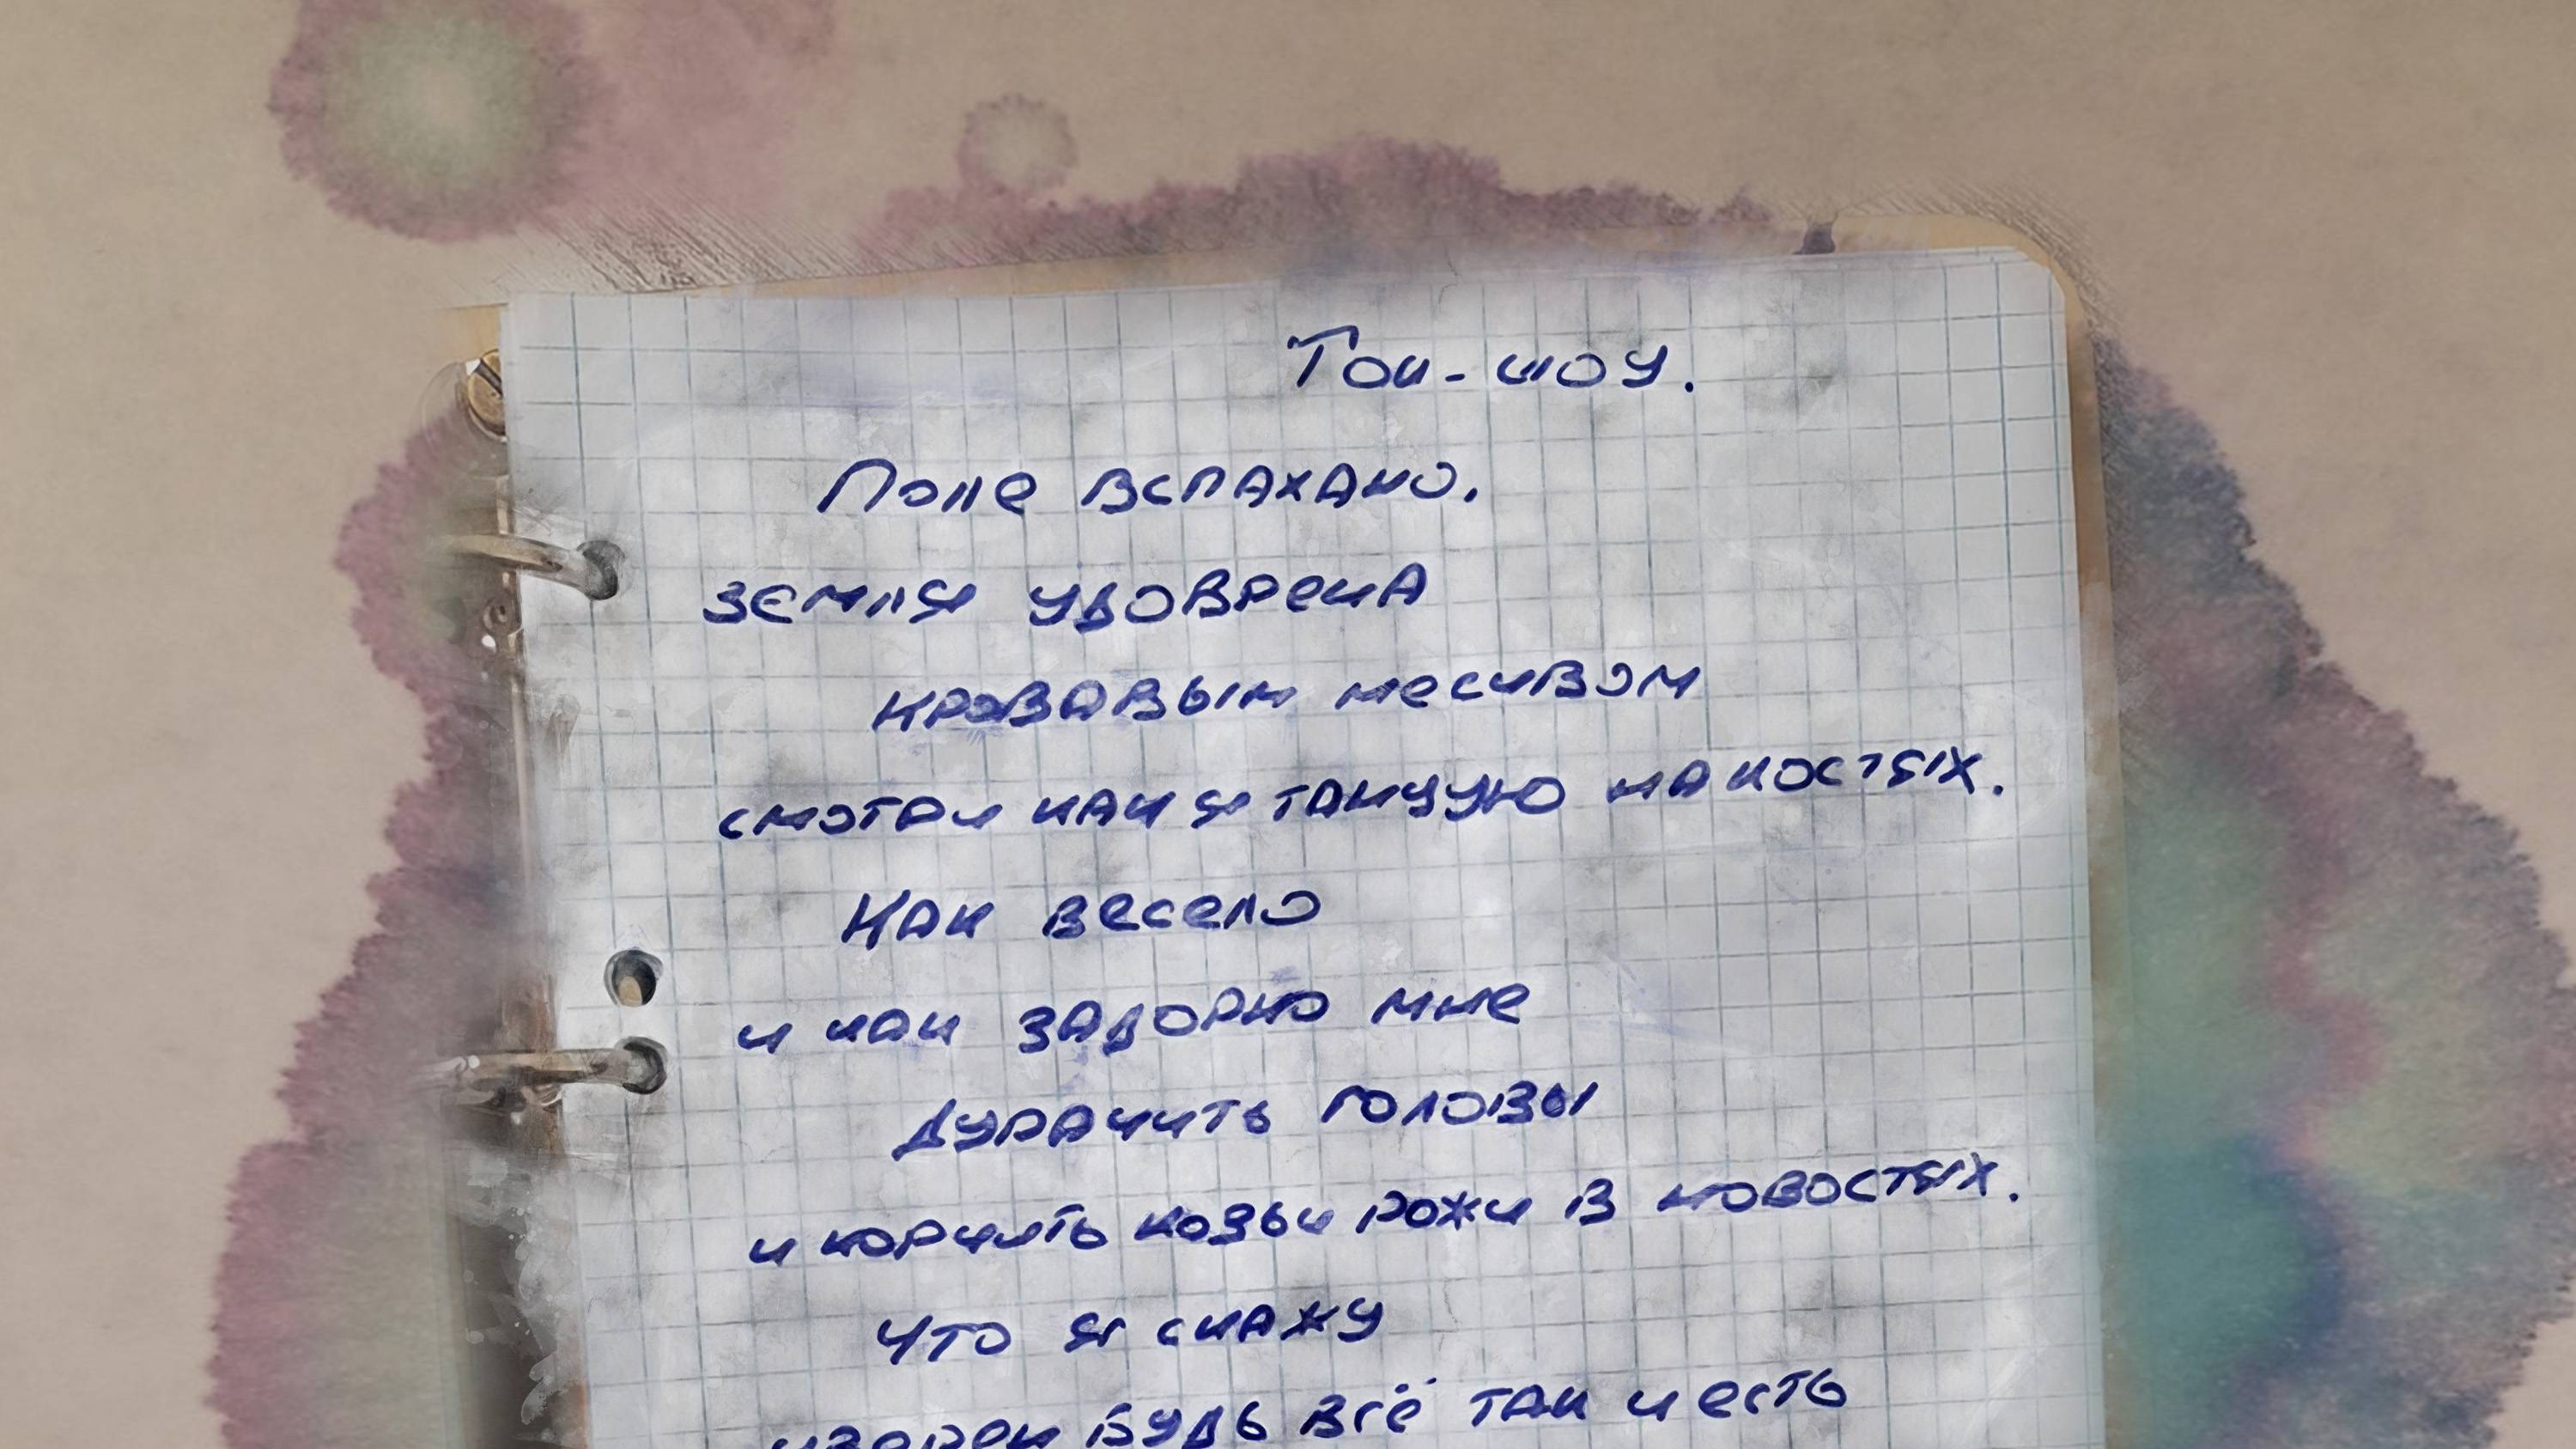 Ток-шоу.
Поле вспахано.
земля удобрена
кровавым месивом
смотри как я танцую на костях.
Как весело
и как задорно мне
дурачить головы
и корчить козьи рожи в новостях.
Что я скажу
будь всё так и есть